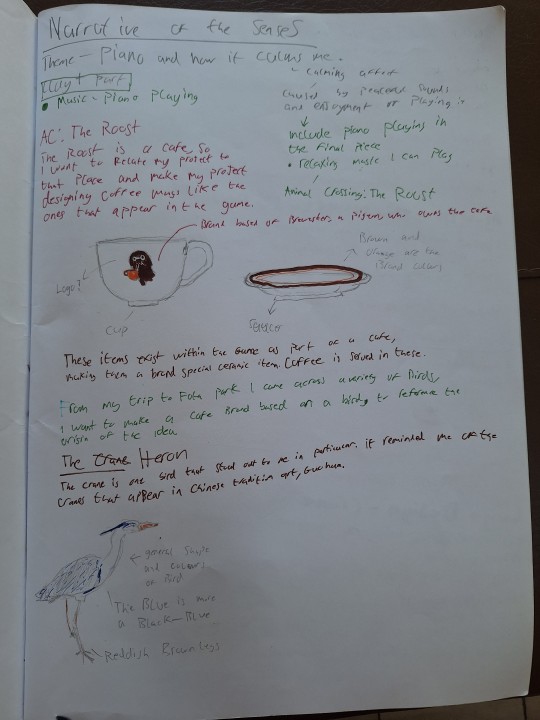 Narrative of the Senses
Theme - Piano and how it calms me.
Clay + Part
• Music - Piano Playing
- Calming affect
Caused by peaceful sounds
and enjoyment of Playing it
include piano playing in
the final piece
• relaxing music I can play
Animal Crossing: The Roost
AC: The Roost
The Roost is a cafe, so
I want to Relate my project to
that place and make my project
designing Coffee mugs like the
ones that appear in the game.
Brand based of Brewster, a pigeon who owns the cafe
Brown and
orange are the
Brand colours
Logo?
Cup
These items exist within the Game as part of a cafe,
making them a brand special ceramic item. Coffee is served in these.
From my trip to Fota park I came across a variety of Birds,
I want to make a Cafe Brand based on a bird, to reforme the
origin of the idea.
The Crane Heron
The crane is one bird that stood out to me in particular. it reminded me of the
cranes that appear in Chinese tradition art, Guohua.
general shape
and colours
on Bird
The Blue is more
a Black-Blue
Reddish Brown legs